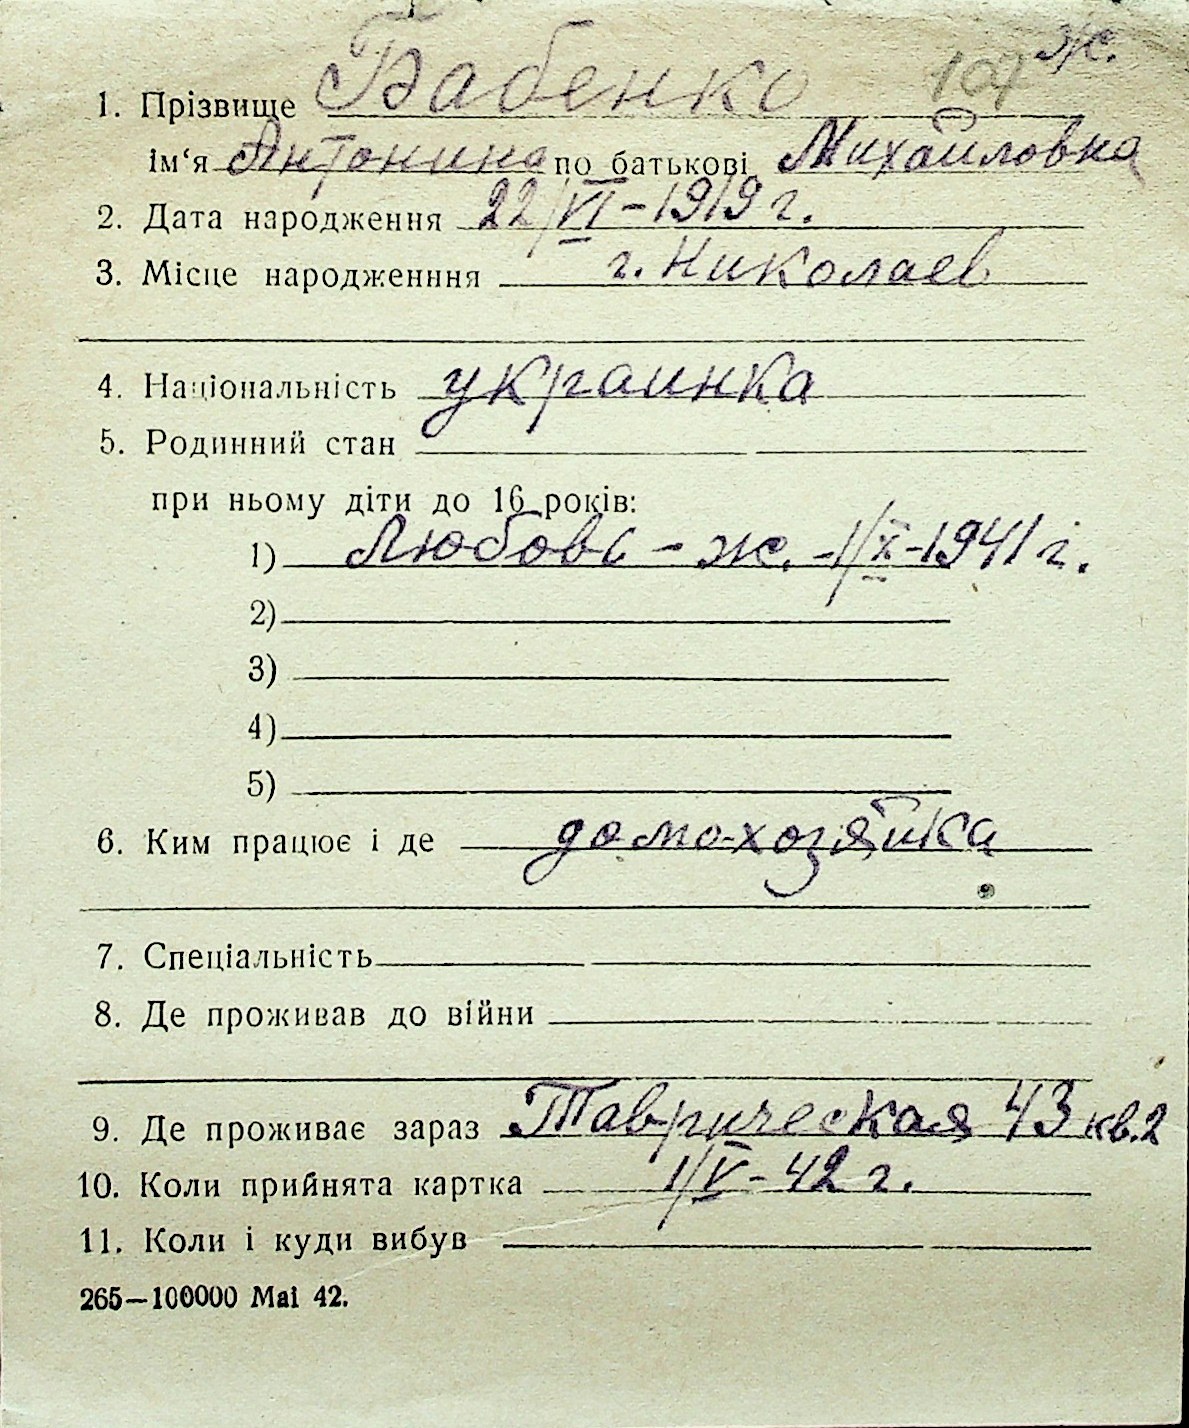 107 ж.
1. Прізвище Бабенко
Ім‘я Антонина по батькові Михайловна
2. Дата народження 22/VI – 1919 г.
3. Місце народженння г. Николаев
4. Національність украинка
5. Родинний стан
при ньому діти до 16 років:
1) Любовь – ж. – 1/X – 1941 г.
2)
3)
4)
5)
6. Ким працює і де домо-хозяйка
7. Спеціальність
8. Де проживав до війни
9. Де проживає зараз Таврическая 43 кв. 2
10. Коли прийнята картка 1/V – 42 г.
11. Коли і куди вибув
265—100000 Mai 42.